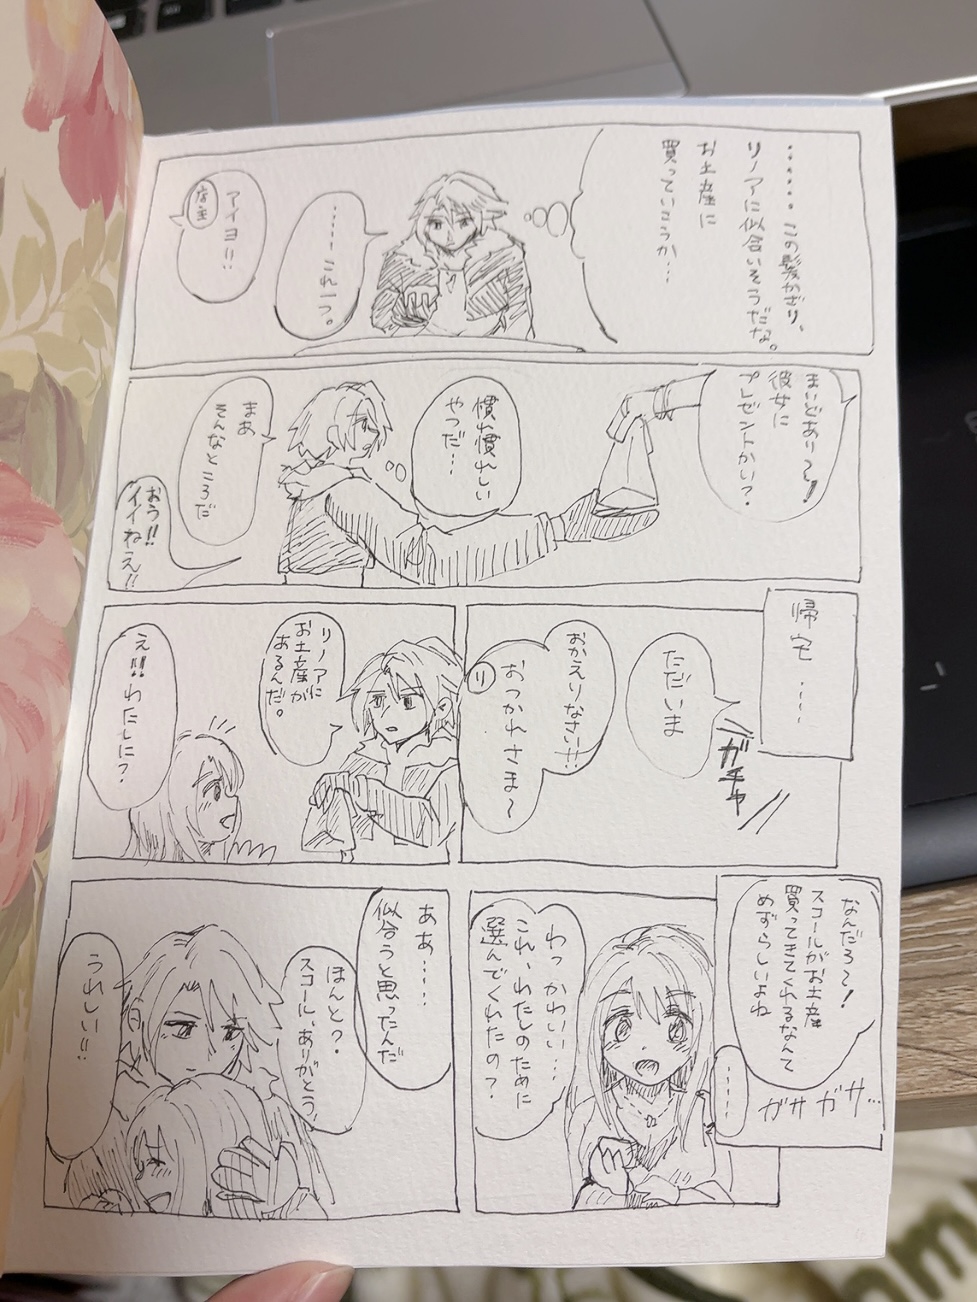 ・・・・・・この髪かざり、
リノアに似合いそうだな。
お土産に
買っていこうか…
……これ一つ。
アイヨ!!
店主
まいどあり〜!
彼女に
プレゼントかい?
慣れ慣れしい
やつだ…
まあ
そんなところだ
おう!!
イイねえ!!
帰宅……
ガチャ
ただいま
おかえりなさい!!
おつかれさま〜
リ
リノアに
お土産が
あるんだ。
え!!!わたしに?
なんだろ〜!
スコールがお土産
買ってきてくれるなんて
めずらしいよね
ガサガサ…
……
わっ かわいい…
これ、わたしのために
選んでくれたの?
ああ……
似合うと思ったんだ
ほんと?
スコール、ありがとう
うれしい!!